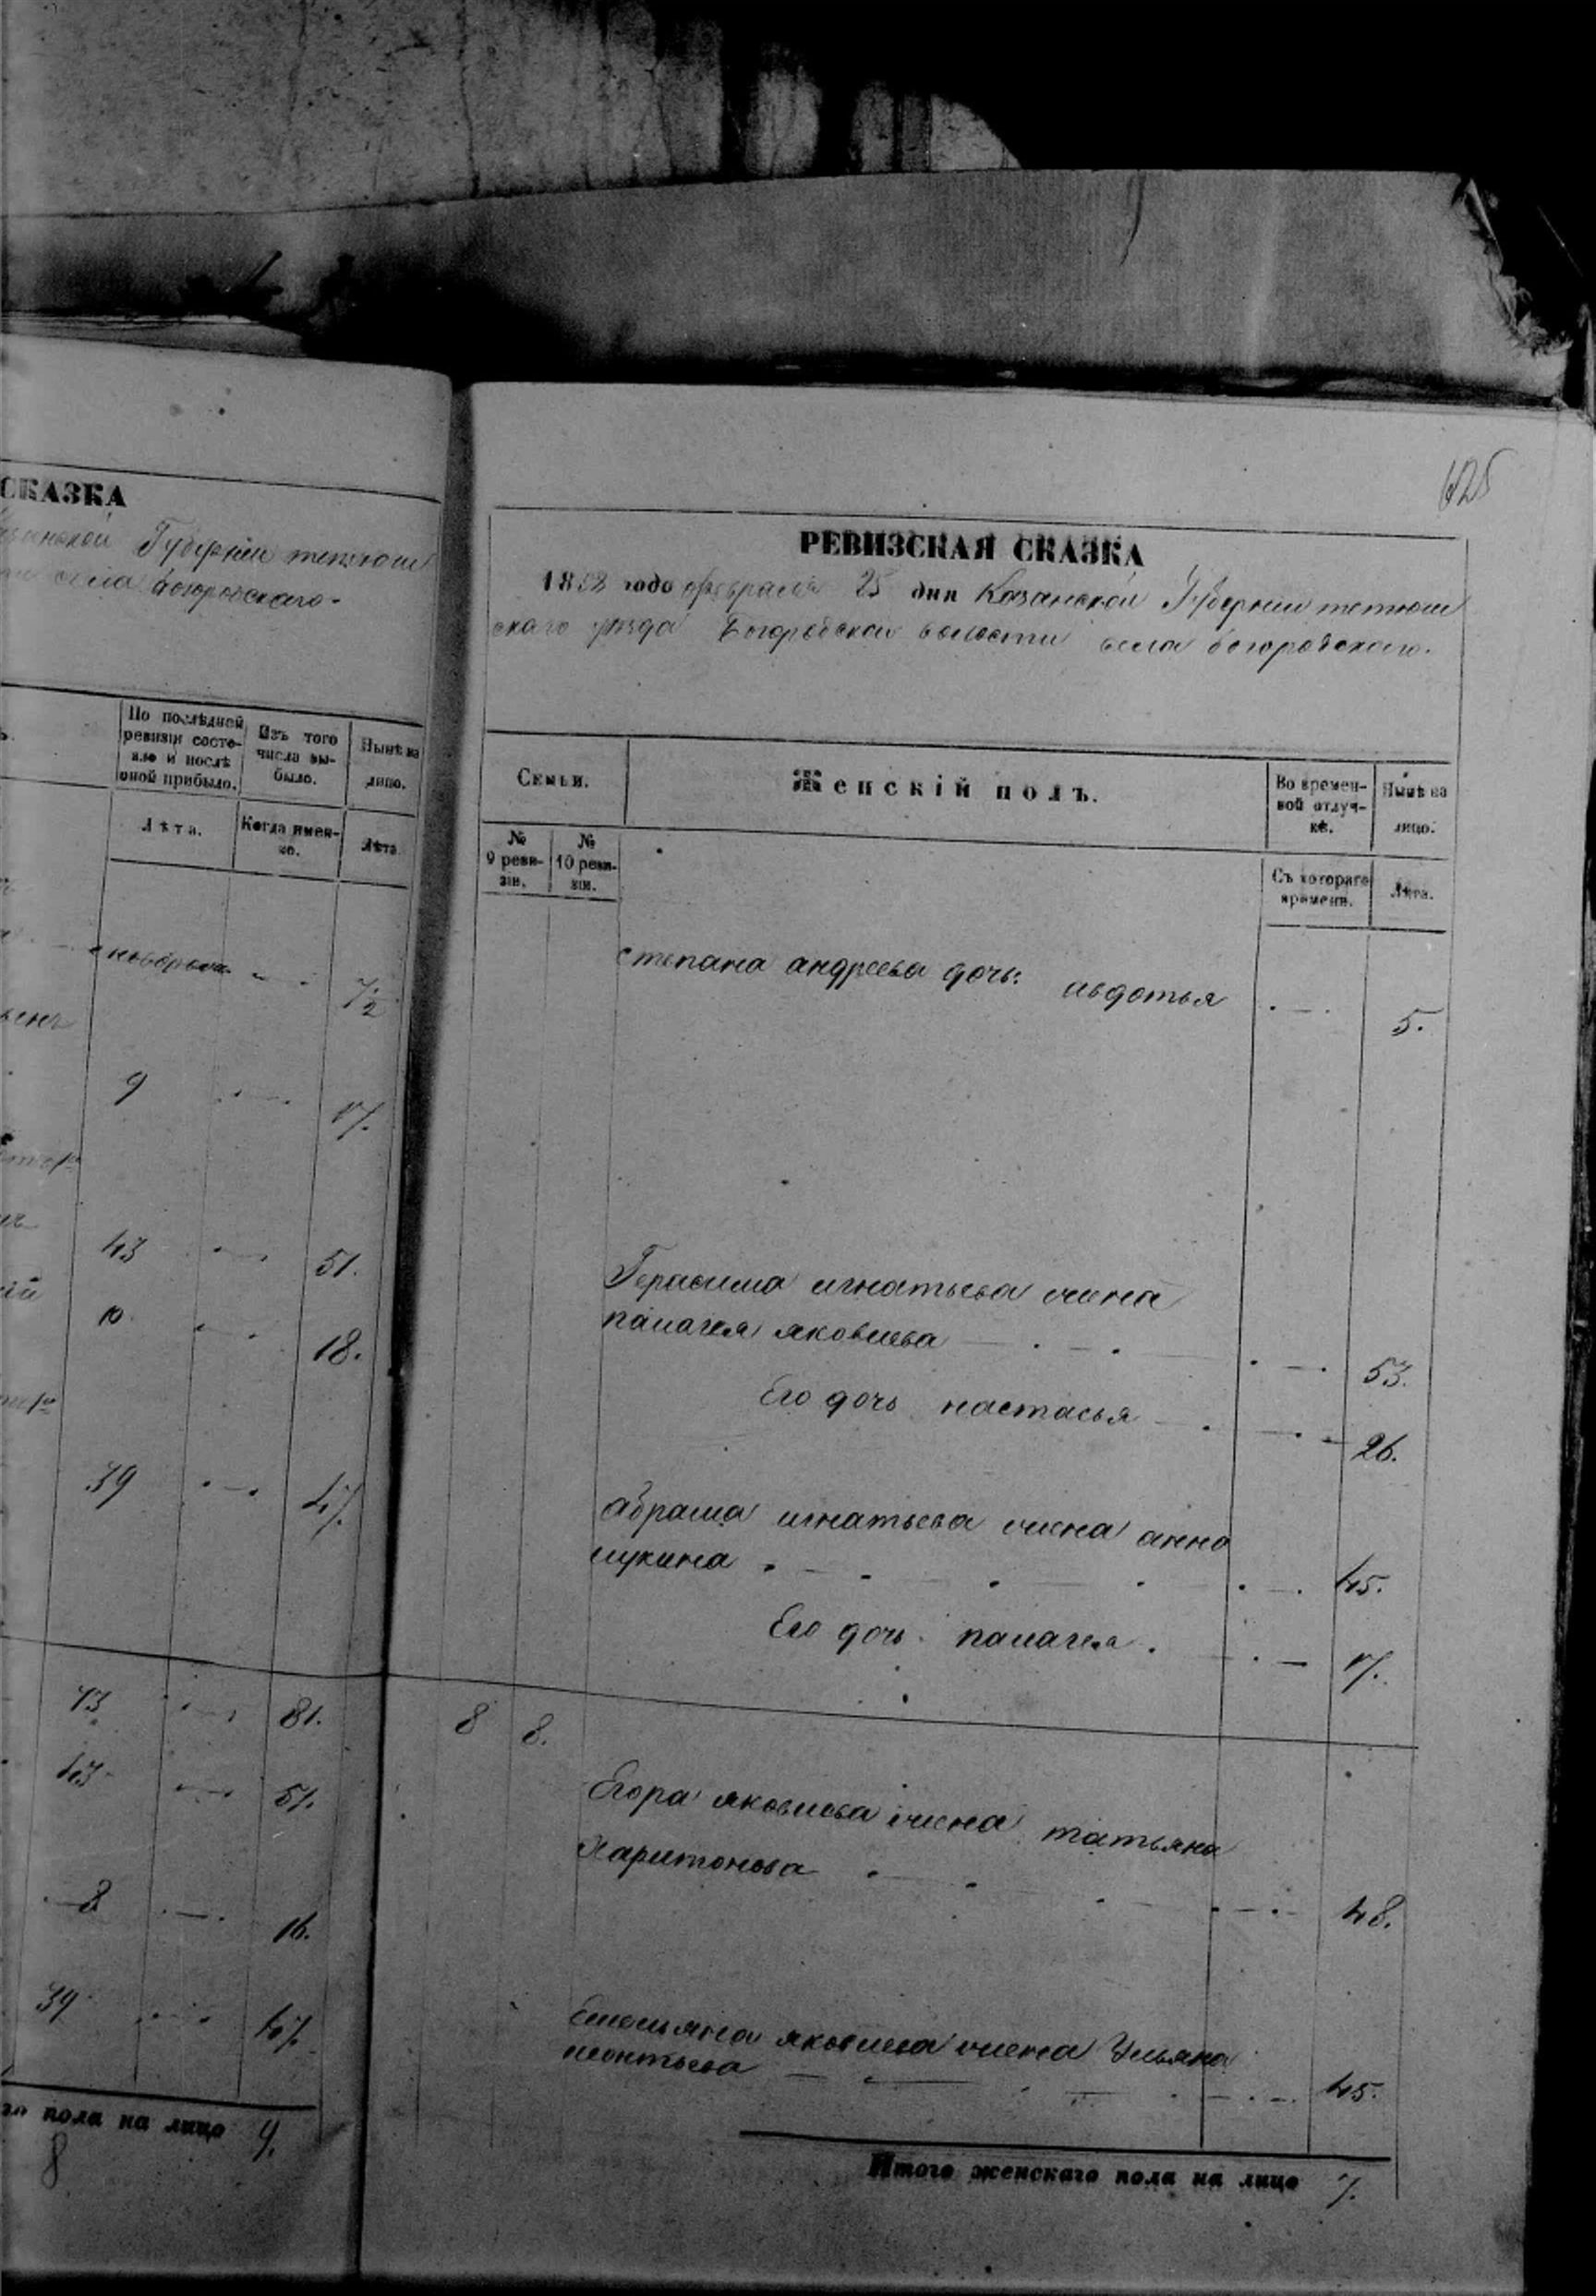 СКАЗКА
Губерніи тетюш
села богородскаго.
По послѣдней
ревизіи состо-
яло и послѣ
оной прибыло.
Изъ того
числа вы-
было.
Нынѣ на
лицо.
Лѣта.
Когда имен-
но.
Лѣта.
7/2
9 17.
43 51.
10 18.
39 47.
73 81.
43 51.
8 16.
39 47.
го пола на лицо 9.
8
625
РЕВИЗСКАЯ СКАЗКА
1858 года февраля 25 дня Казанской Губерніи тетюш
скаго уезда Богородской волости села богородскаго.
Семьи.
Женскій полъ.
Во времен-
ной отлуч-
кѣ.
Нынѣ на
лицо.
№
9 реви-
зіи.
№
10 реви-
зіи.
Съ котораго
времени.
Лѣта.
степана андреева дочь: авдотья 5.
Герасима игнатьева жена
палагея яковлева 53.
Его дочь настасья 26.
абрама игнатьева жена анна
лукина 45.
Его дочь палагея. 17.
8 8.
Егора яковлева жена татьяна
Харитонова 48.
Емельяна яковлева жена Ульяна
леонтьева 45.
Итого женскаго пола на лицо 7.